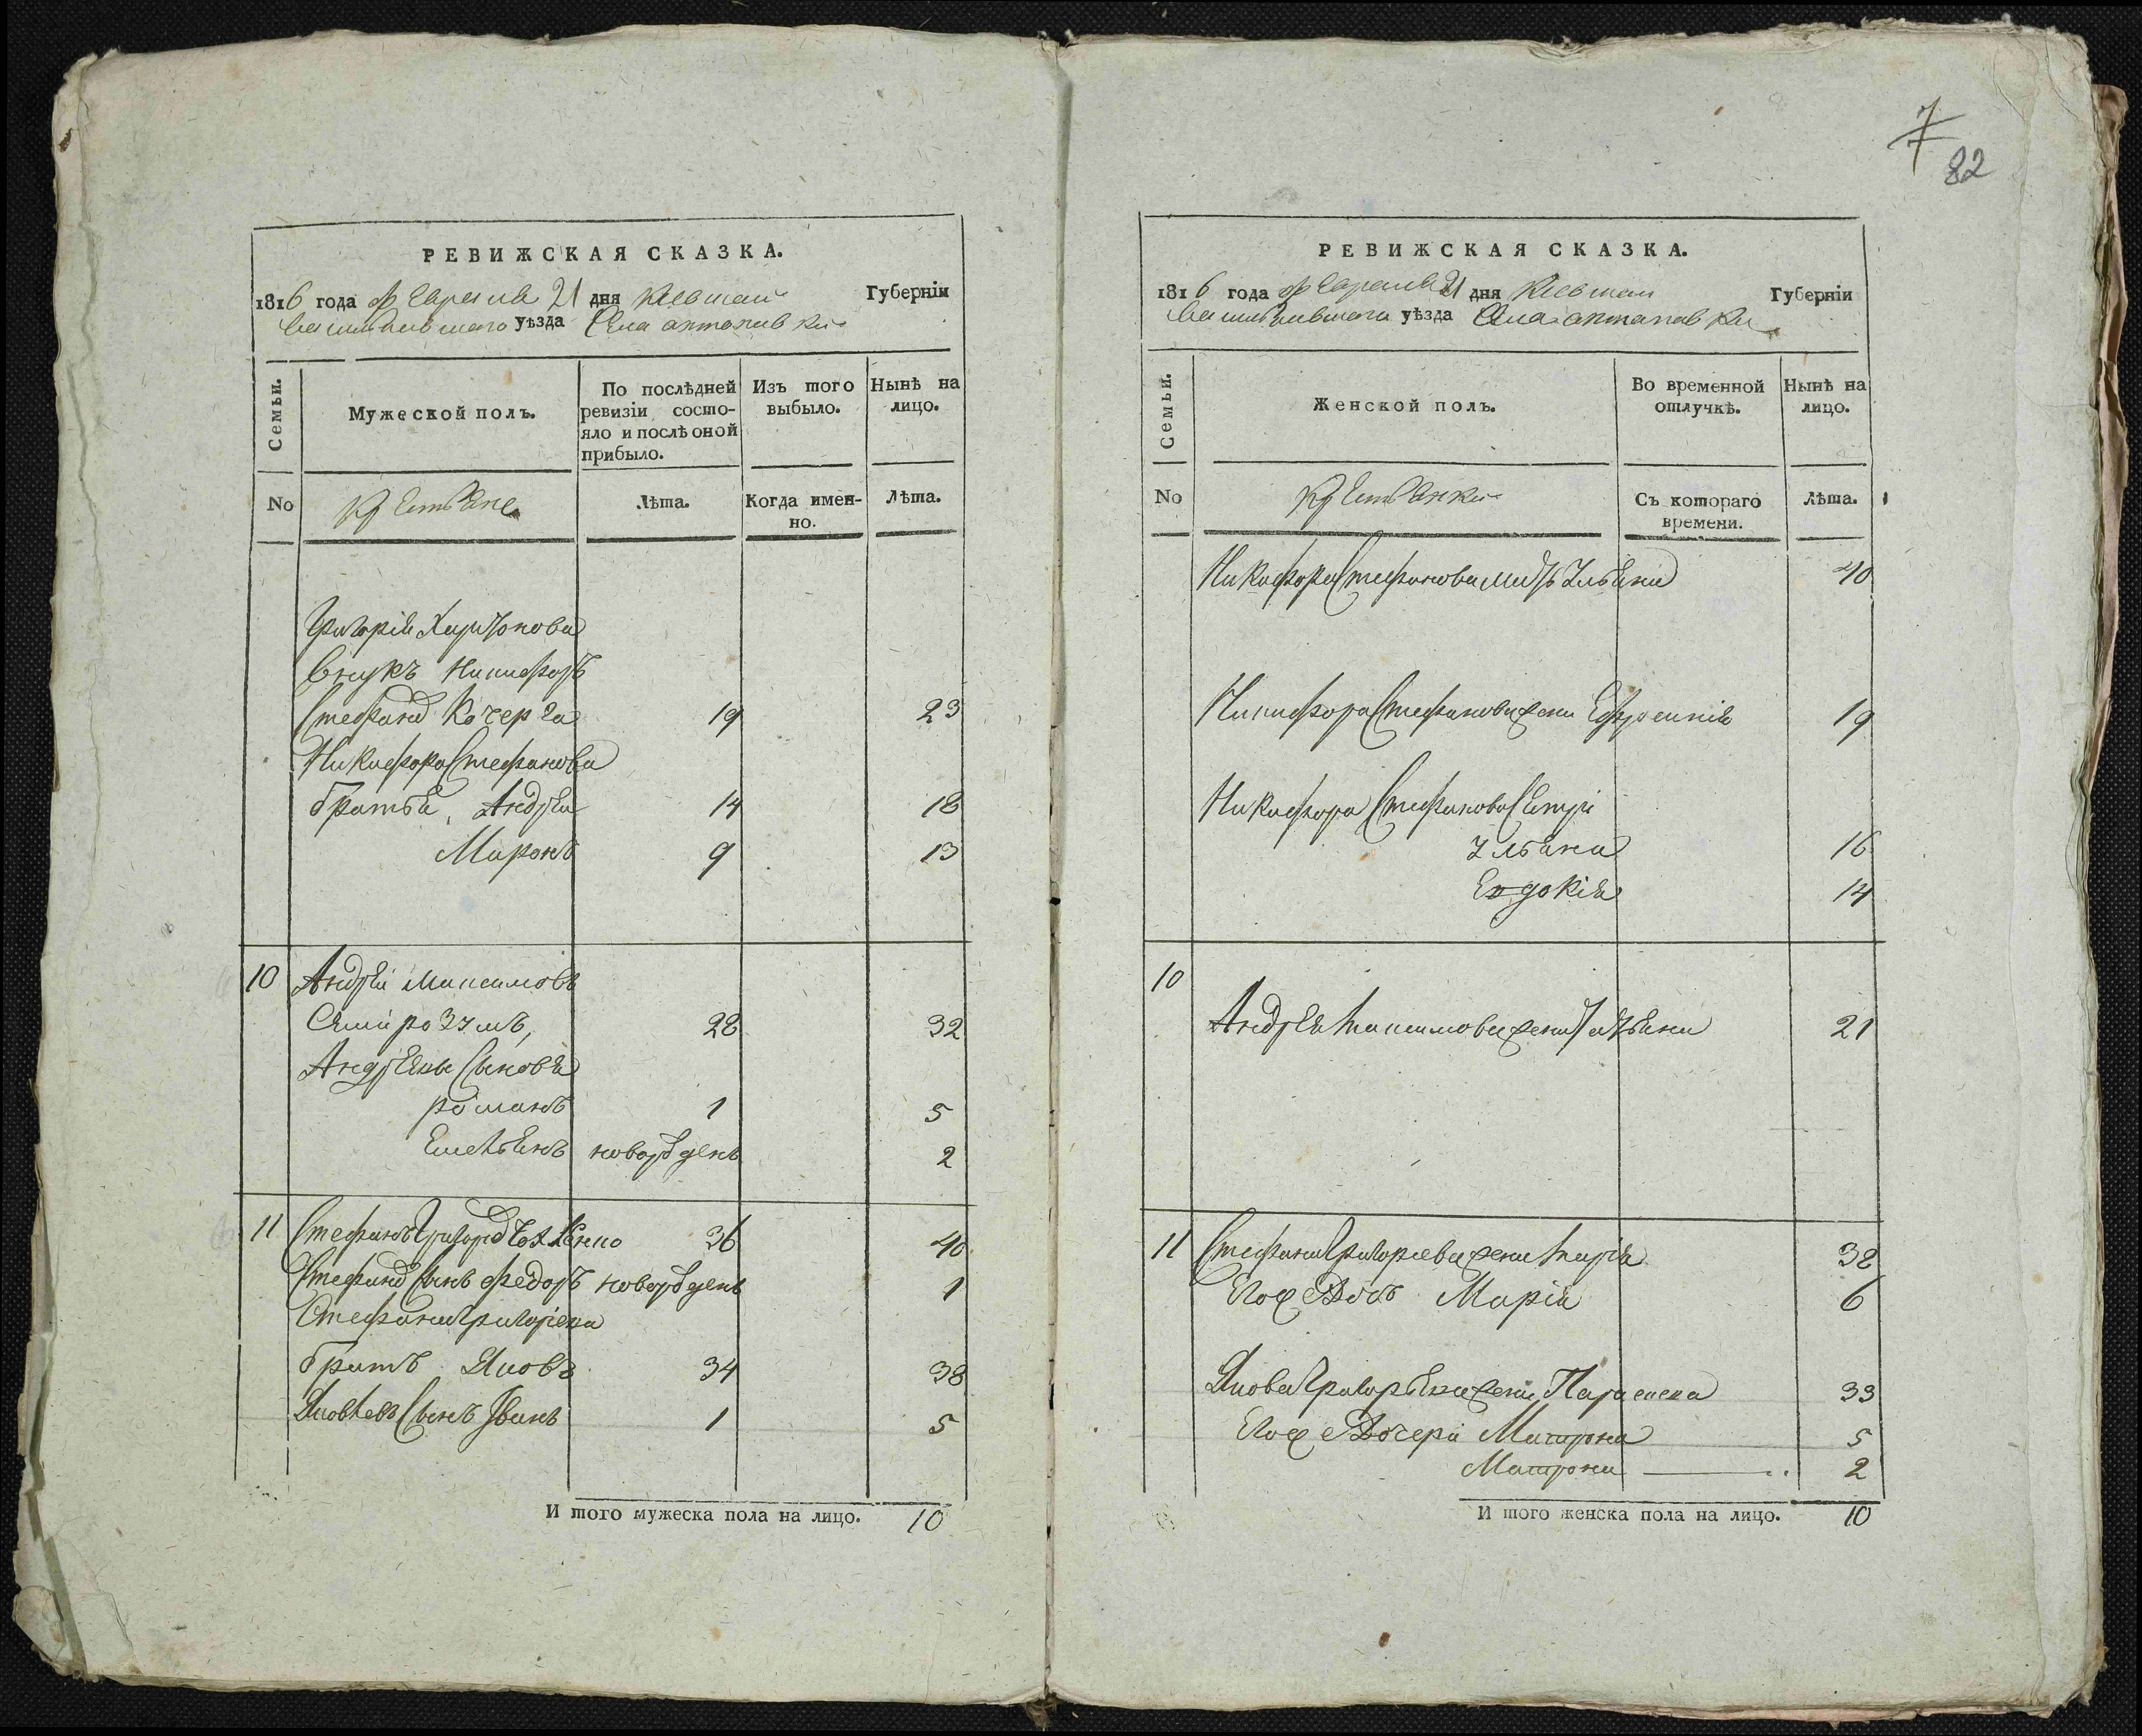 РЕВИЖСКАЯ СКАЗКА.
1816 года февраля 21 дня Киевской Губерніи
васильковского уѣзда Села антоновки
Семьи.
Мужеской полъ.
По послѣдней ревизіи состо-
яло и послѣ оной
прибыло.
Изъ того
выбыло.
Нынѣ на
лицо.
No
крестьяне
Лѣта.
Когда имен-
но.
Лѣта.
Григорія Харитонова
внукъ Никифоръ
Стефановъ Кочерга 19 23
Никифора Стефанова
братья, Андрей 14 18
Миронъ 9 13
10 Андрей Максимовъ
28 32
Андреевы Сыновья
романъ 1 5
Емельянъ новорожденъ 2
11 Стефанъ Григорьевъ 36 40
Стефановъ Сынъ федоръ новорожденъ 1
Стефана Григорьева
братъ Яковъ 34 38
Яковлевъ Сынъ Іванъ 1 5
И того мужеска пола на лицо. 10
7
82
РЕВИЖСКАЯ СКАЗКА.
1816 года февраля 21 дня Киевской Губерніи
васильковского уѣзда Села антоновки
Семьи.
Женской полъ.
Во временной
отлучкѣ.
Нынѣ на
лицо.
No
крестьянки
Съ котораго
времени.
Лѣта.
Никифора Стефанова мать Ульяна 40
Никифора Стефанова жена Ефросинія 19
Никифора Стефанова Сестри
Ульяна 16
Евдокія 14
10
Андрея Максимова жена Татьяна 21
11 Стефана Григорьева жена Марія 38
Его же Дочь Марія 6
Якова Григорьева жена Параскева 33
Его же Дочери Матрона 5
Матрона 2
И того женска пола на лицо. 10